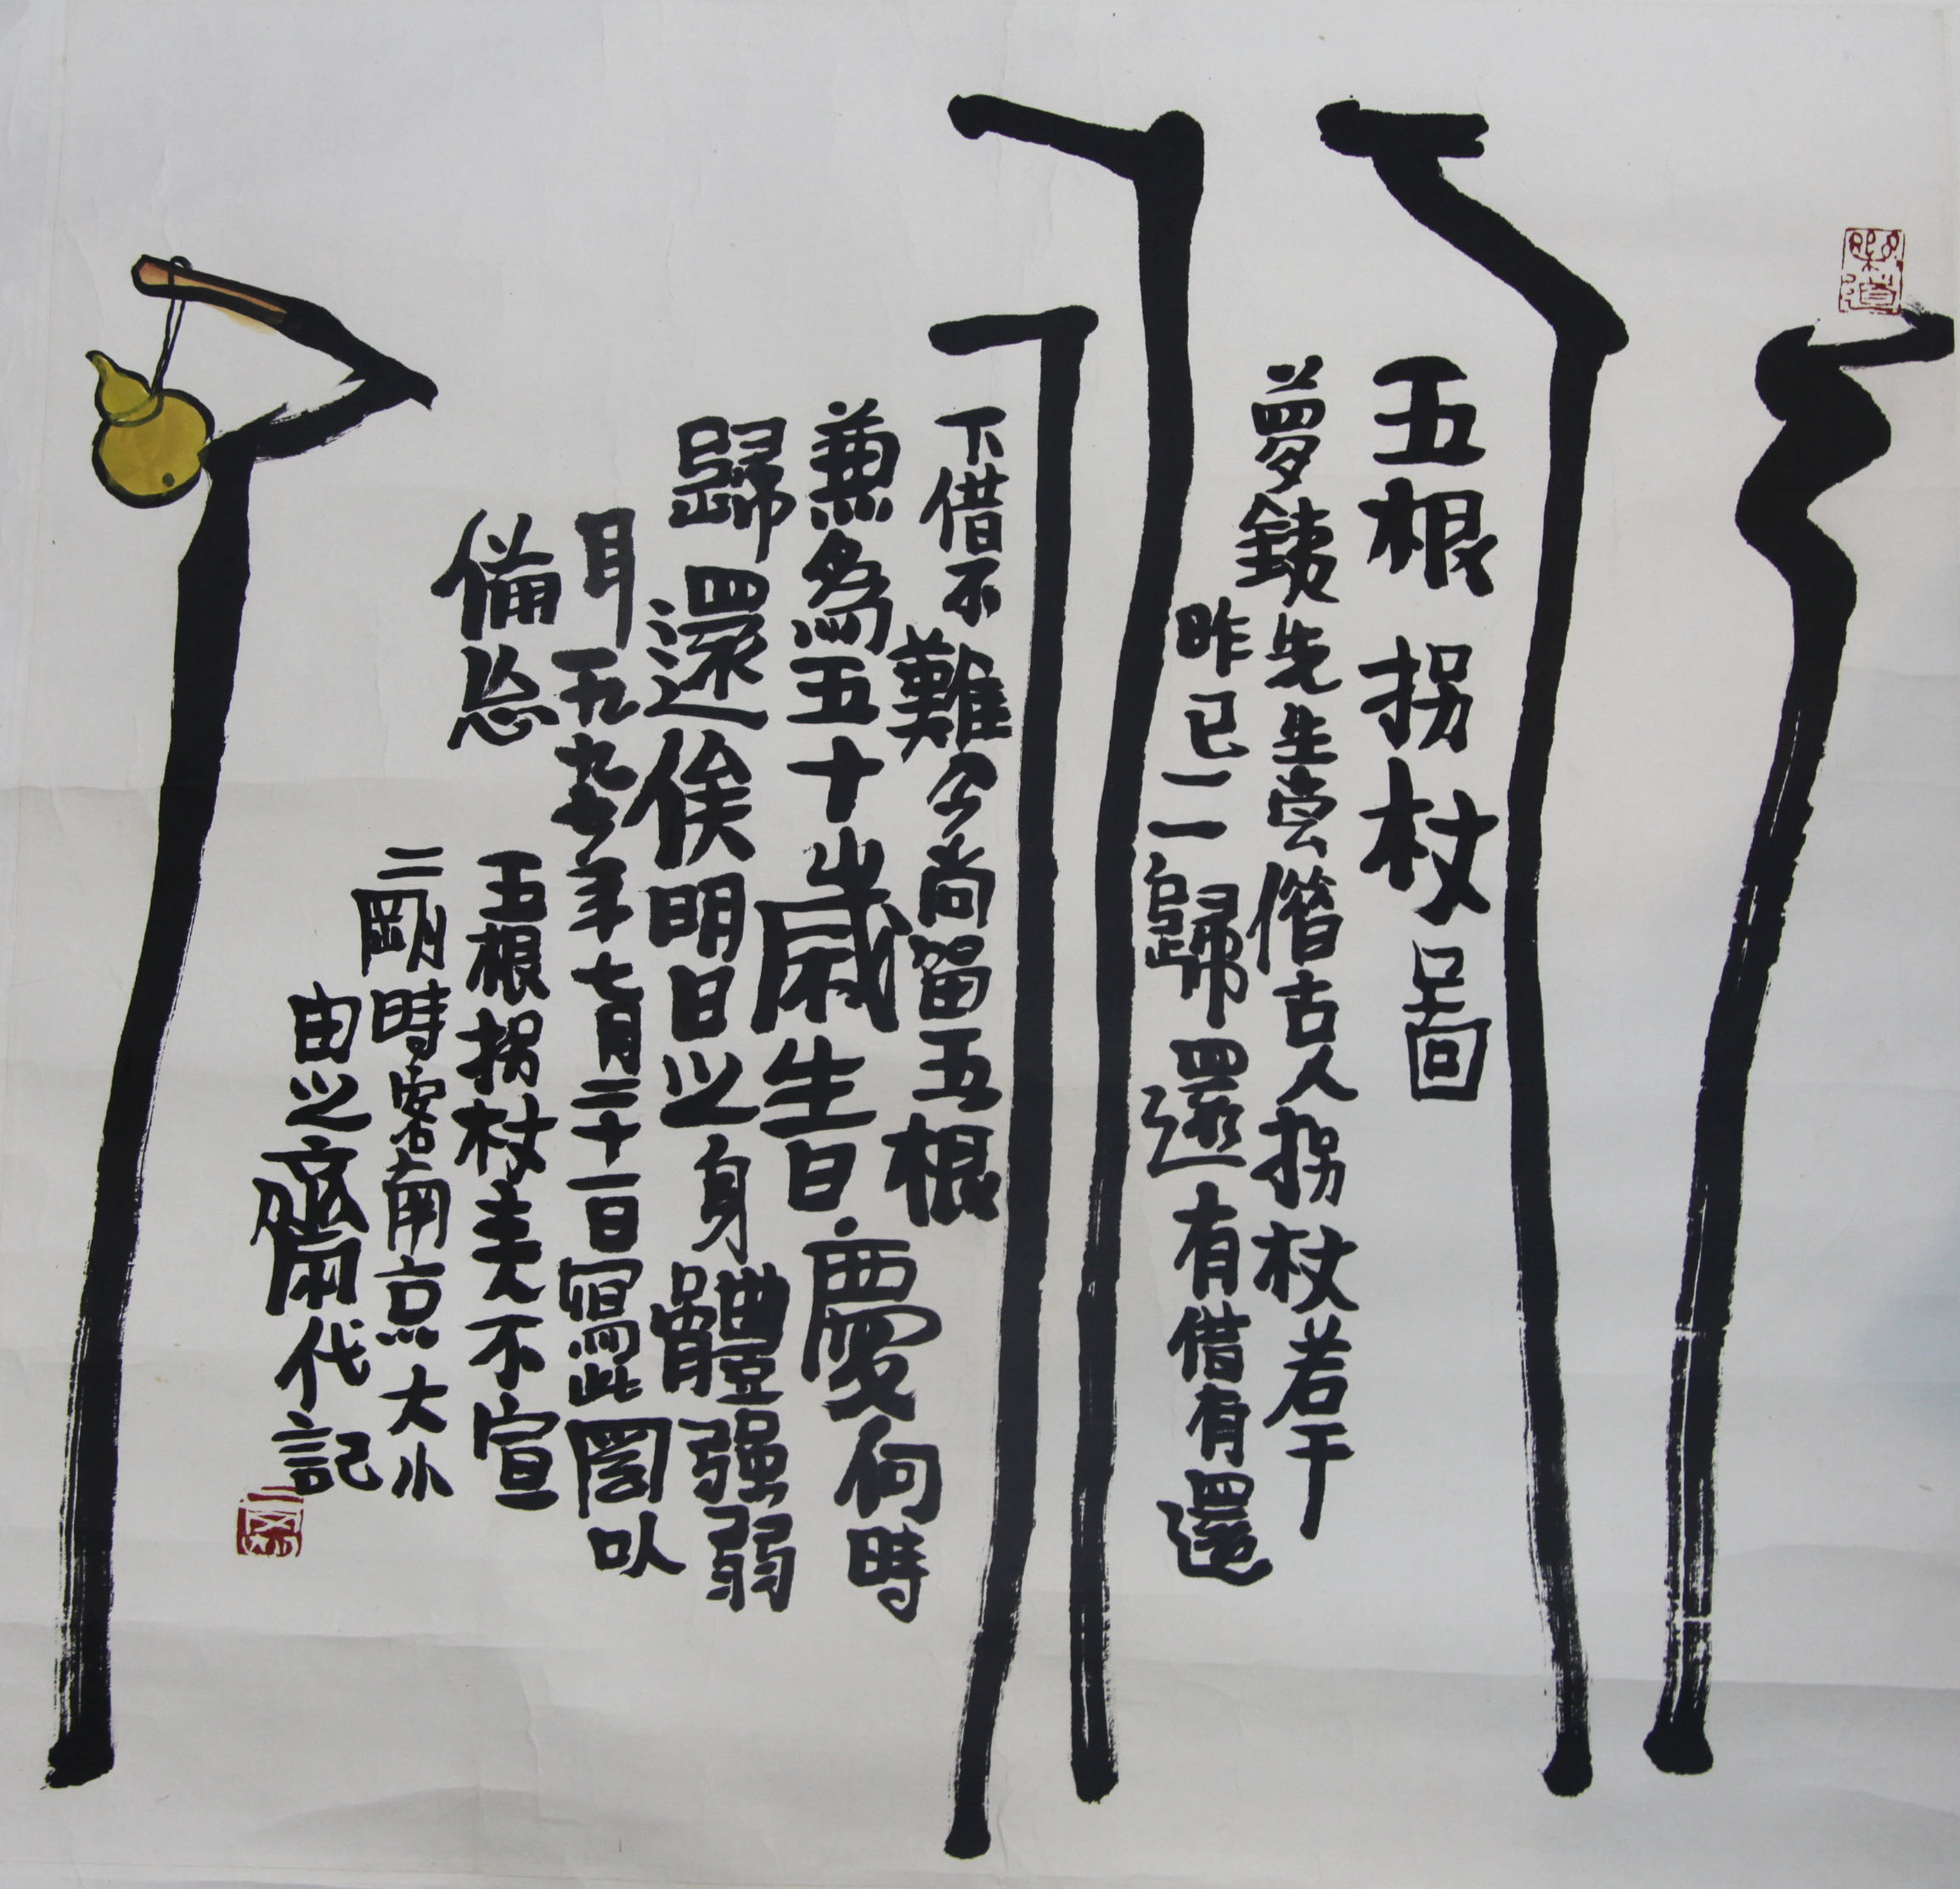 樂道
五根拐杖圖
夢銕先生嘗借古人拐杖若干
昨已一一歸還有借有還
下借不難今尚留五根
兼為五十歲生日慶何時
歸還俟明日之身體强弱
耳一九九七年七月二十一日寫此圖以
備忘 五根拐杖美不宣
二剛時客南京大小
由之齋代記